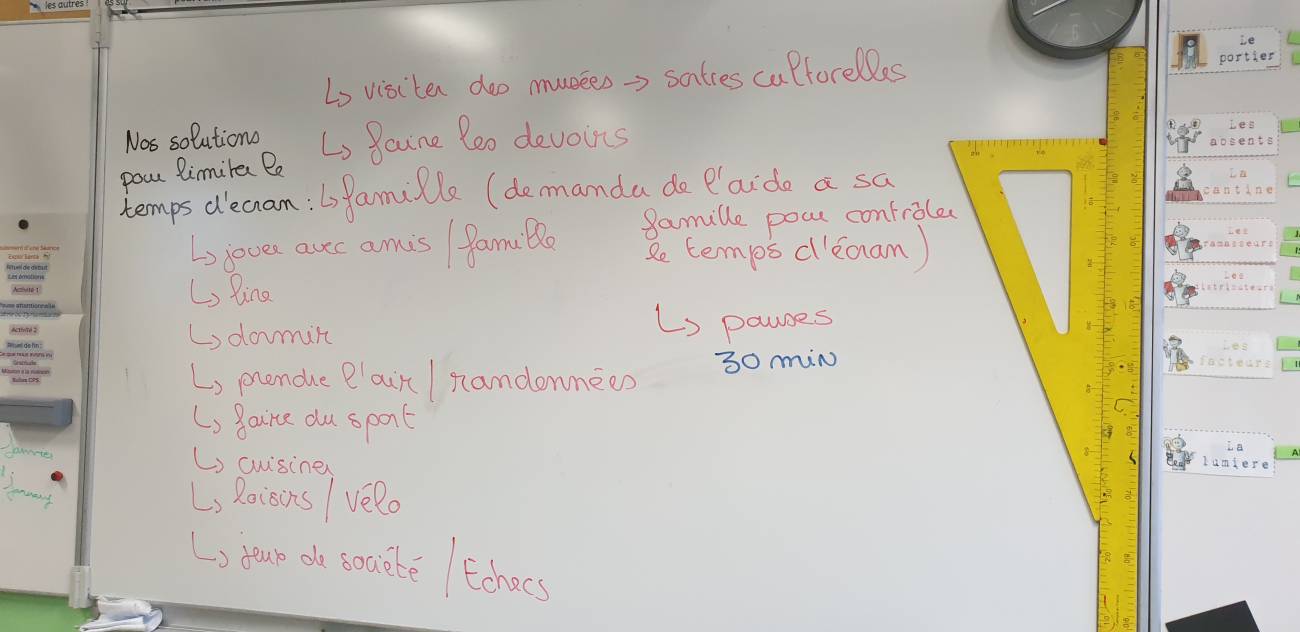 les autres !
↳ visiter des musées → sorties culturelles
Nos solutions
pour limiter le
temps d'écran :
↳ faire les devoirs
↳ famille (demander de l'aide à sa
famille pour contrôler
le temps d'écran)
↳ jouer avec amis / famille
↳ lire
↳ dormir
↳ prendre l'air / randonnées
↳ faire du sport
↳ cuisiner
↳ loisirs / vélo
↳ jeux de société / Echecs
↳ pauses
30 min
Le
portier
Les
absents
La
cantine
Les
ramasseurs
Les
distributeurs
Les
facteurs
La
lumiere
Rituel de début
Les émotions
Activité 1
Activité 2
Rituel de fin :
Gratitude
January